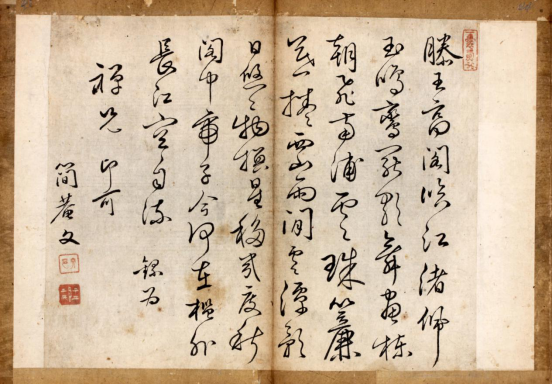 滕王高閣臨江渚佩
玉鳴鸞罷歌舞畫棟
朝飛南浦雲珠簾
暮捲西山雨閒雲潭影
日悠〻物換星移幾度秋
閣中帝子今何在檻外
長江空自流 錄為
禪兄 印可
簡菴文